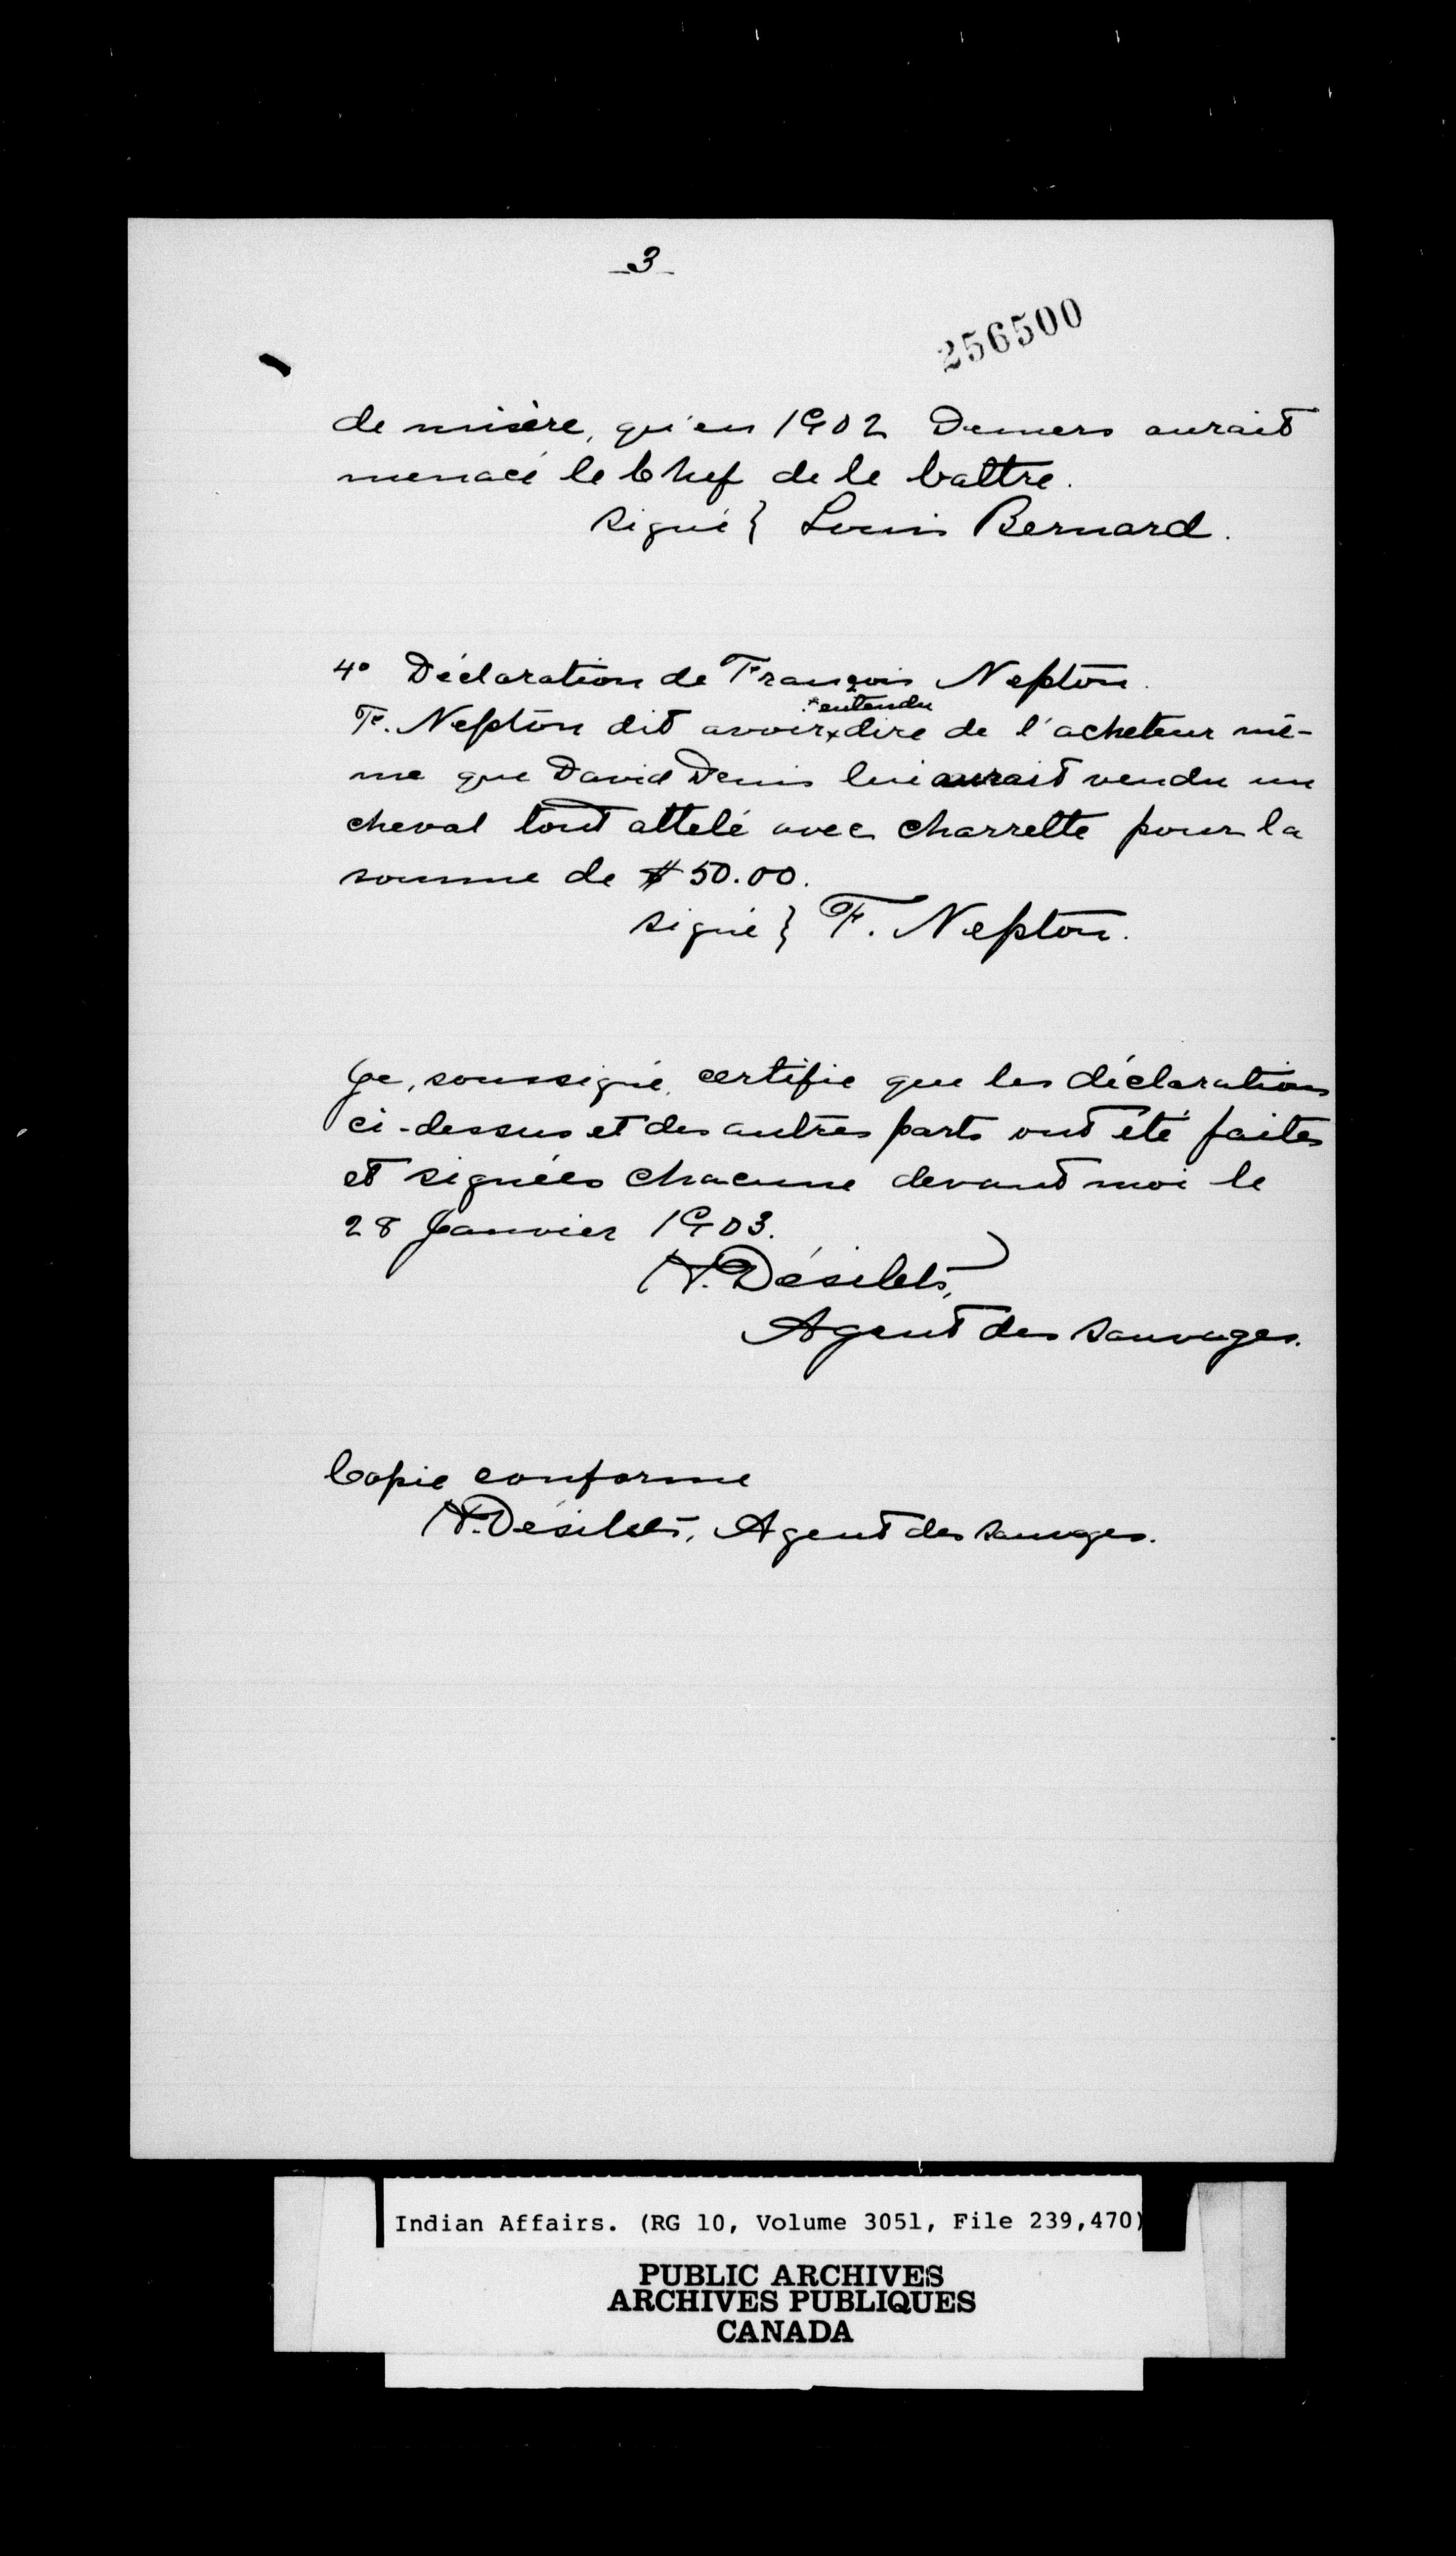 _3_
256500
de misère, qu'en 1902 Demers aurait
menacé le Chef de le battre.
signé} Louis Bernard.
4° Déclaration de François Nepton.
×entendu
F. Nepton dit avoir × dire de l'acheteur mê-
me que David Denis lui aurait vendu un
cheval tout attelé avec charrette pour la
somme de $50.00.
signé} F. Nepton.
Je, soussigné, certifie que les déclarations
ci-dessus et des autres parts ont été faites
et signées chacune devant moi le
28 Janvier 1903.
A. Désilets,
Agent des Sauvages.
Copie conforme
A. Désilets, Agent des Sauvages.
Indian Affairs. (RG 10, Volume 3051, File 239,470)
PUBLIC ARCHIVES
ARCHIVES PUBLIQUES
CANADA